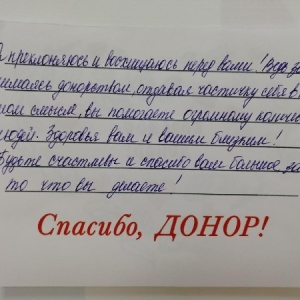 Я преклоняюсь и восхищаюсь перед вами! Ведь за
нимаясь донорством, отдавая частичку себя в
ом смысле, вы помогаете огромному количе
людей. Здоровья вам и вашим близким!
Будьте счастливы и спасибо вам большое за
то что вы делаете!
Спасибо, ДОНОР!